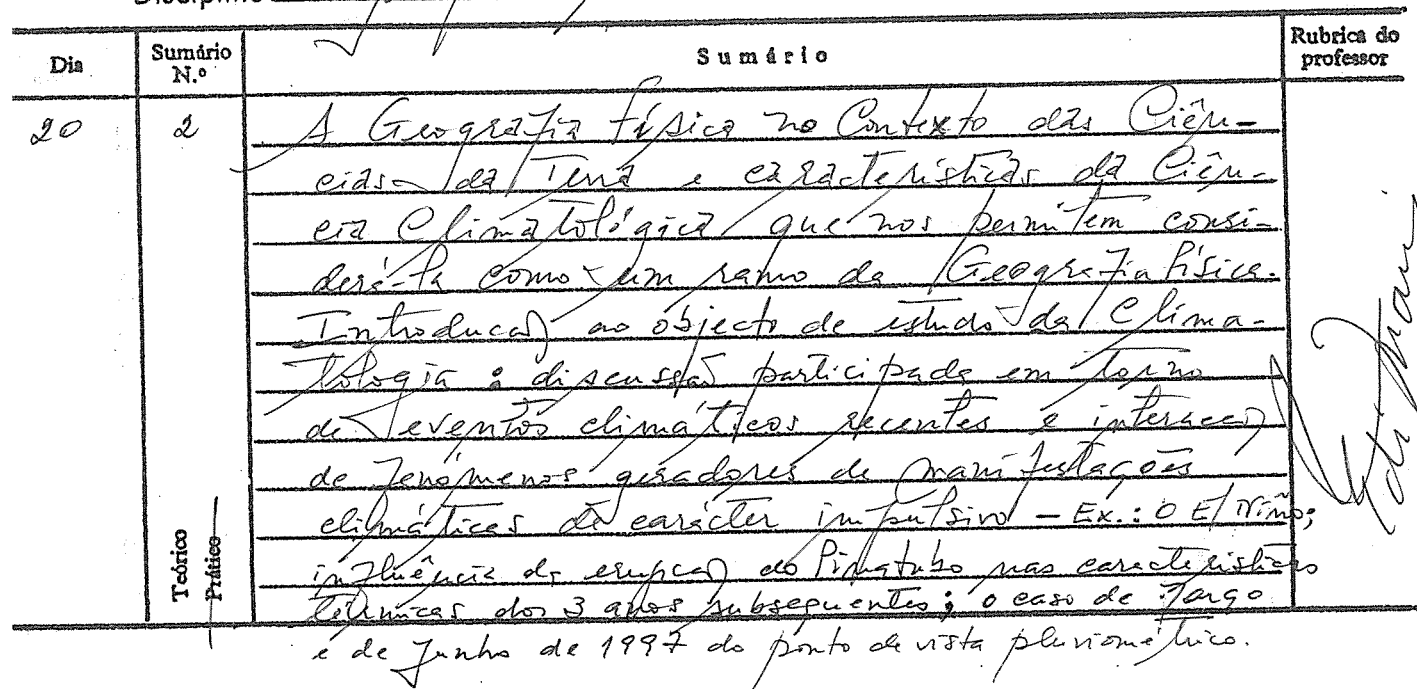 Dia
Sumário N.º
Sumário
Rubrica do professor
20
2
A Geografia Física no Contexto das Ciên-
cias da Terra e características da Ciên-
cia Climatológica que nos permitem consi-
derá-la como um ramo da Geografia Física.
Introdução ao objecto de estudo da Clima-
tologia: discussão participada em torno
de eventos climáticos recentes e interacção
de fenómenos geradores de manifestações
climáticas de carácter impulsivo - Ex.: O El Niño;
influência da erupção do Pinatubo nas características
térmicas dos 3 anos subsequentes; o caso de Março
e de Junho de 1997 do ponto de vista pluviométrico.
Teórico
Prático